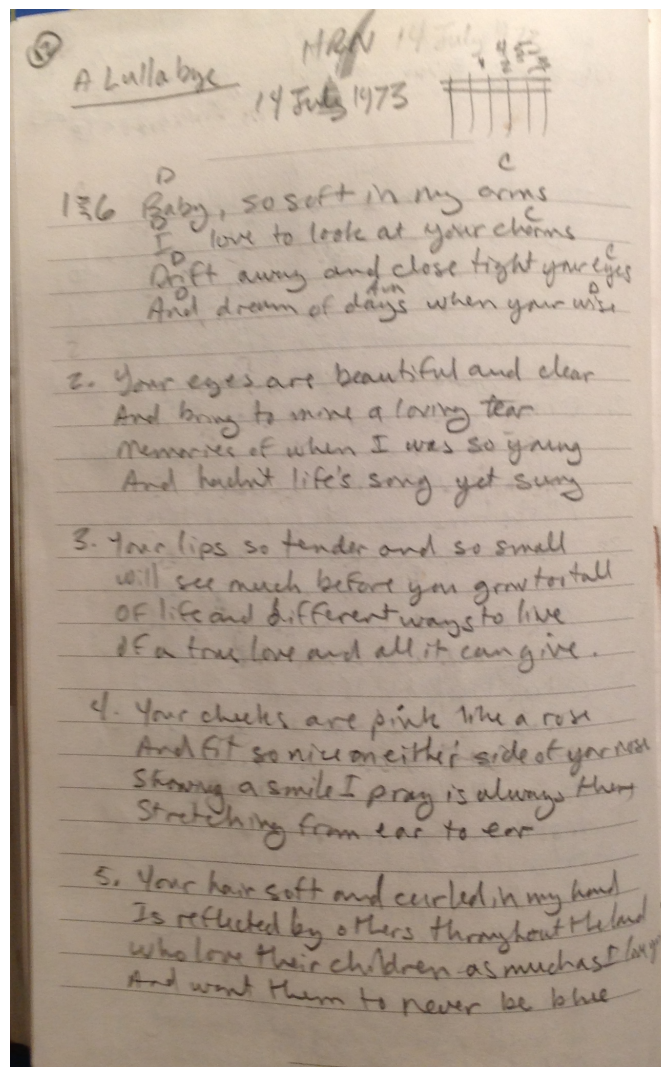 A Lullabye
MRN
14 July 1973
D C
1 & 6 Baby, so soft in my arms
D C
I love to look at your charms
D C
Drift away and close tight your eyes
D Am D
And dream of days when your wise
2. Your eyes are beautiful and clear
And bring to mine a loving tear
Memories of when I was so young
And hadn't life's song yet sung
3. Your lips so tender and so small
Will see much before you grow too tall
Of life and different ways to live
Of a true love and all it can give.
4. Your cheeks are pink like a rose
And fit so nice on either side of your nose
Showing a smile I pray is always there
Stretching from ear to ear
5. Your hair soft and curled in my hand
Is reflected by others throughout the land
Who love their children as much as I love you
And want them to never be blue